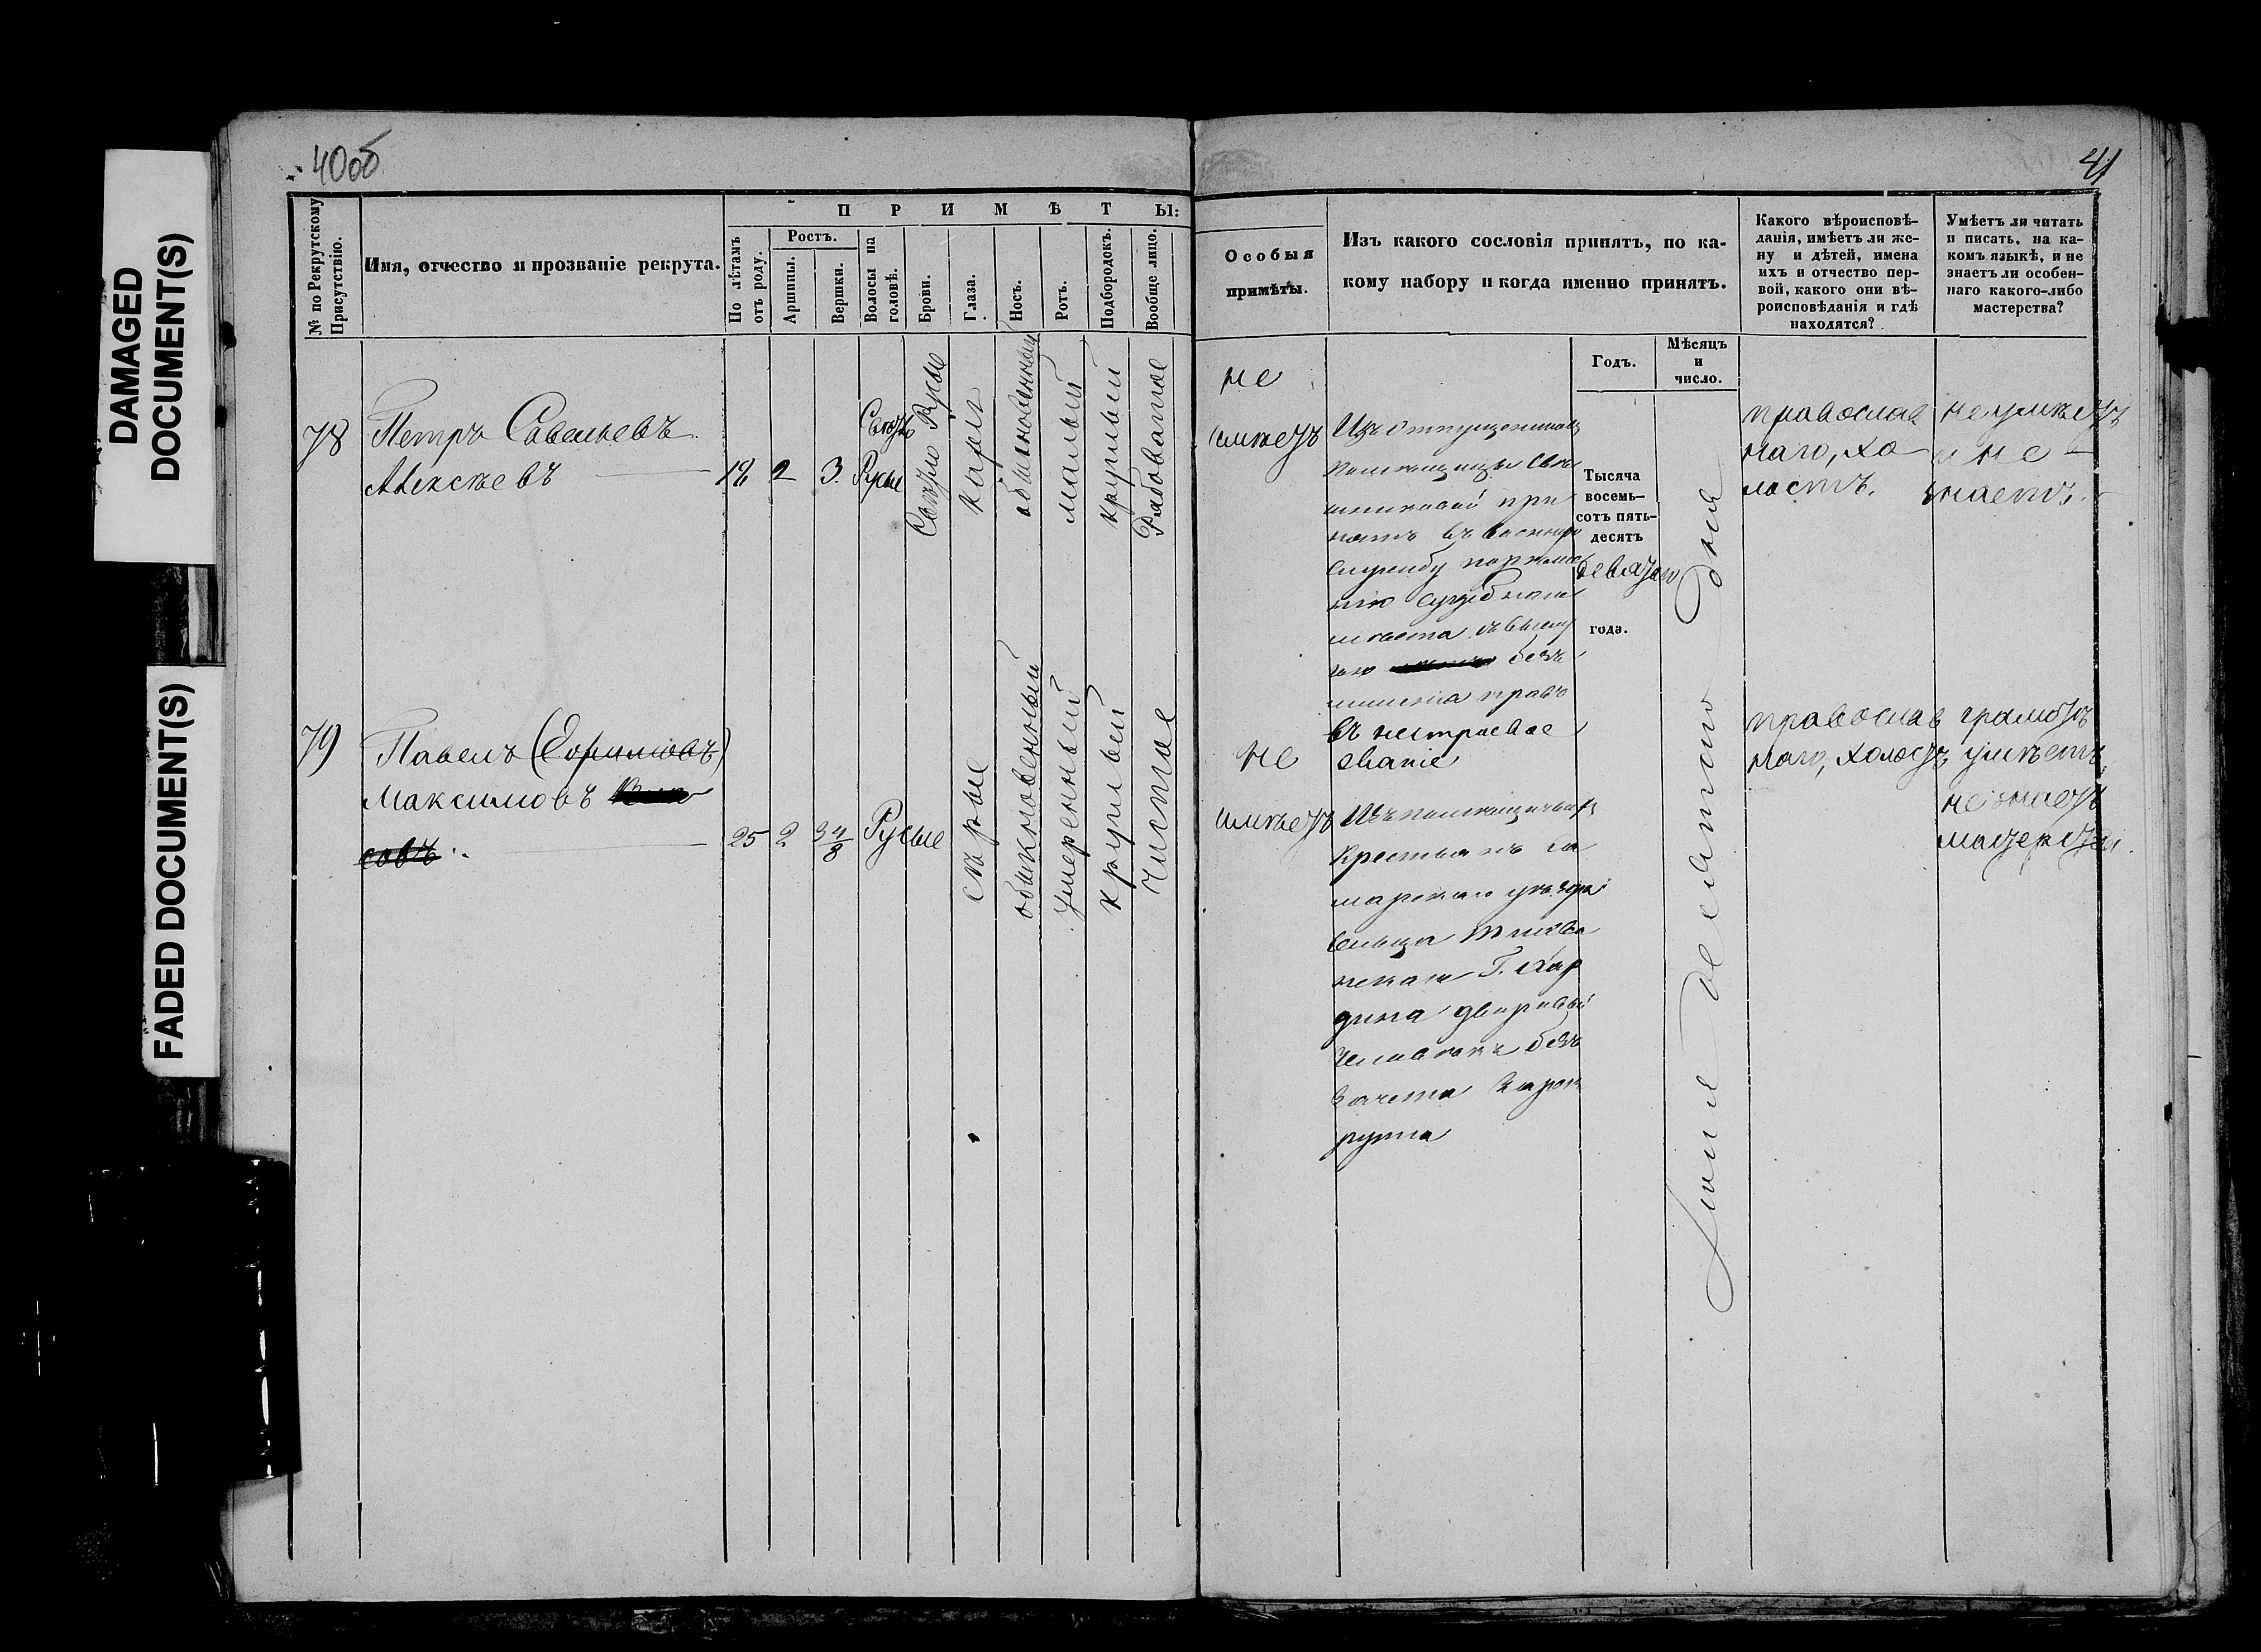 DAMAGED
DOCUMENT(S)
FADED DOCUMENT(S)
40об
41
№ по Рекрутскому
Присутствію.
Имя, отчество и прозваніе рекрута.
ПРИМѢТЫ:
По лѣтамъ
отъ роду.
Ростъ.
Аршины.
Вершки.
Волосы на
головѣ.
Брови.
Глаза.
Носъ.
Ротъ.
Подбородокъ.
Вообще лицо.
Особыя
примѣты.
Изъ какого сословія принятъ, по ка-
кому набору и когда именно принятъ.
Годъ.
Мѣсяцъ
и
число.
Какого вѣроисповѣ-
данія, имѣетъ ли же-
ну и дѣтей, имена
ихъ и отчество пер-
вой, какого они вѣ-
роисповѣданія и гдѣ
находятся?
Умѣетъ ли читать
и писать, на ка-
комъ языкѣ, и не
знаетъ ли особен-
наго какого-либо
мастерства?
78
Петръ Савельевъ
Алексѣевъ
18 2 3.
Свѣтло
Русые
Свѣтло Русые
каріе
обыкновенный
малый
круглый
Рябоватое
не
имѣетъ
Изъ отпущенниковъ
помѣщицы
принятъ въ военную
службу по рѣше
нію
мѣста
безъ
лишенія правъ
въ нестроевое
званіе
Тысяча
восемь-
сотъ пять-
десятъ
девятаго
года.
Іюня десятаго дня
православ
наго, хо
лостъ.
не умѣетъ
и не
знаетъ.
79
Павелъ (Ефимовъ)
Максимовъ
совъ
25 2 3 4/8
Русые
сѣрые
обыкновенный
умѣренный
круглый
Чистое
не
имѣетъ
Изъ помѣщичьихъ
крестьянъ Са
марскаго уѣзда
сельца
Г. Хар
дина дворовый
человѣкъ безъ
зачета за рек
рута
православ
наго, холостъ
грамотѣ
умѣетъ,
не знаетъ
мастерства.